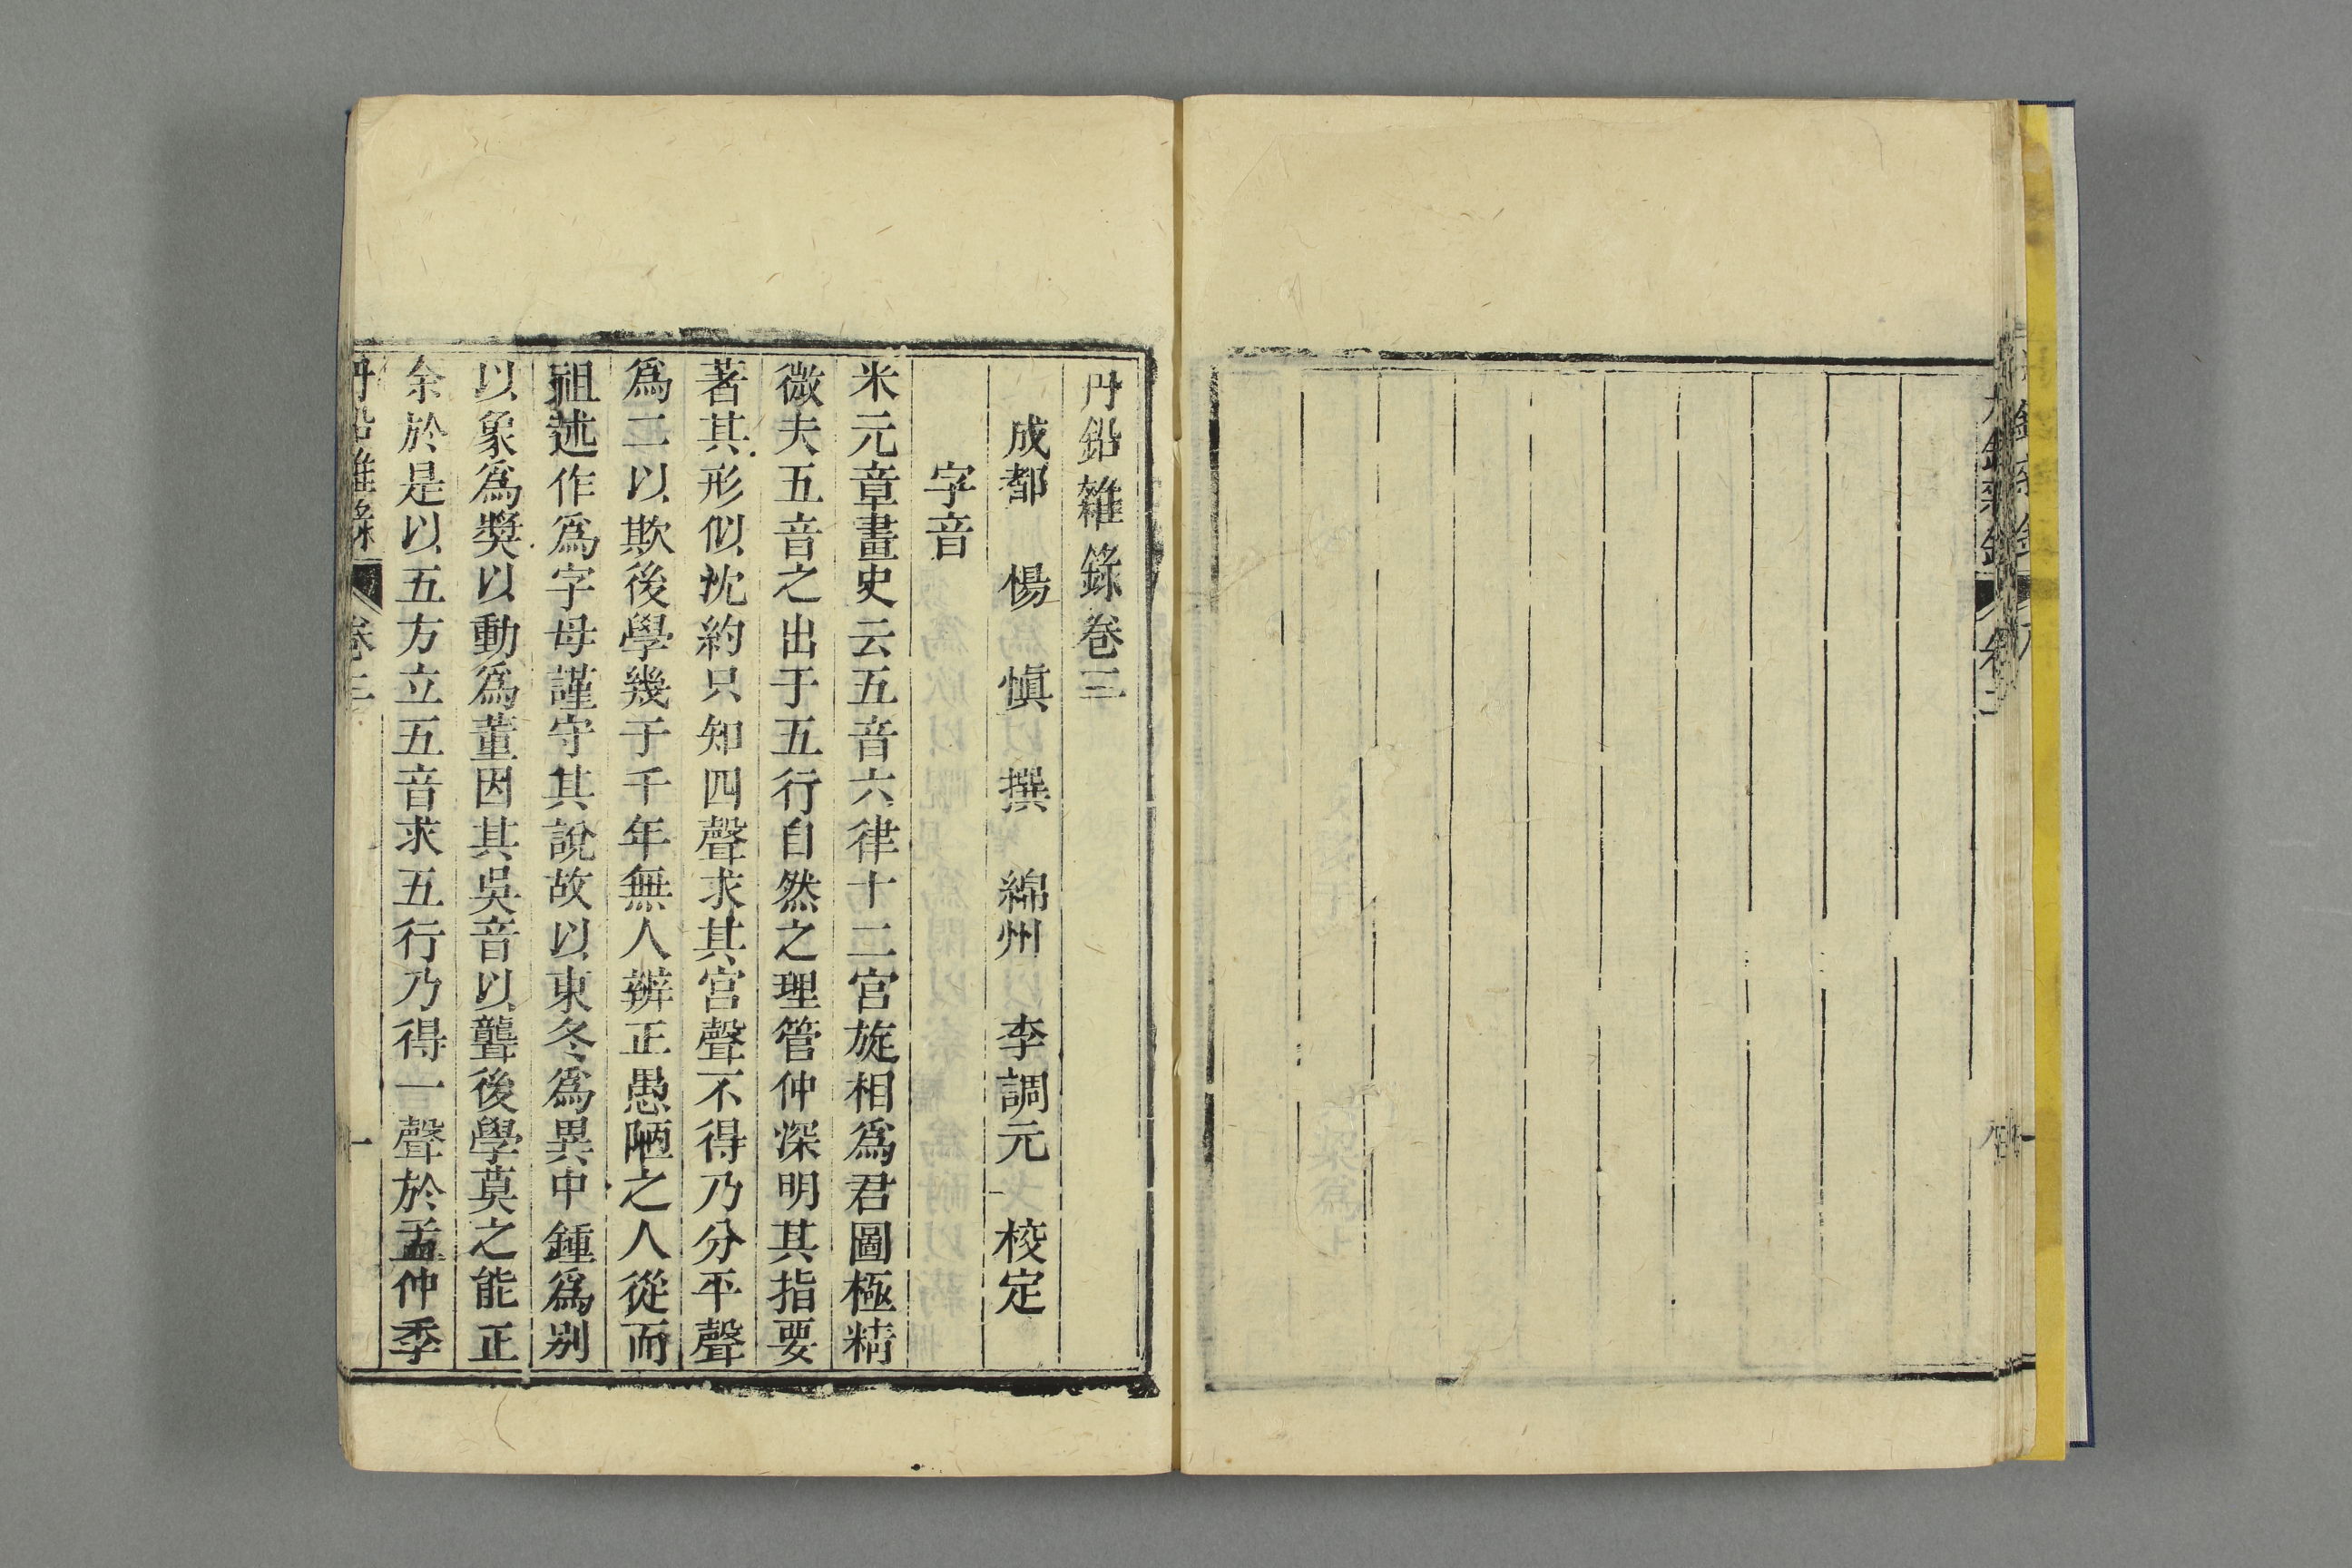 丹鉛雜錄卷三
成都 楊 慎 撰 綿州 李調元 校定
字音
米元章畫史云五音六律十二宮旋相爲君圖極精
微夫五音之出于五行自然之理管仲深明其指要
著其形似沈約只知四聲求其宮聲不得乃分平聲
爲二以欺後學幾于千年無人辨正愚陋之人從而
祖述作爲字母謹守其說故以東冬爲異中鍾爲别
以象爲奬以動爲董因其吳音以聾後學莫之能正
余於是以五方立五音求五行乃得一聲於孟仲季
丹鉛雜錄 卷三 一